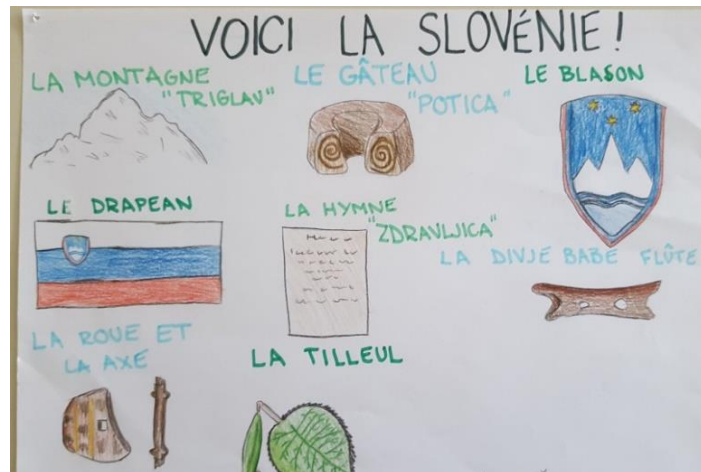 VOICI LA SLOVÉNIE!
LA MONTAGNE
"TRIGLAV"
LE GÂTEAU
"POTICA"
LE BLASON
LE DRAPEAN
LA HYMNE
"ZDRAVLJICA"
LA DIVJE BABE FLÛTE
LA ROUE ET
LA AXE
LA TILLEUL